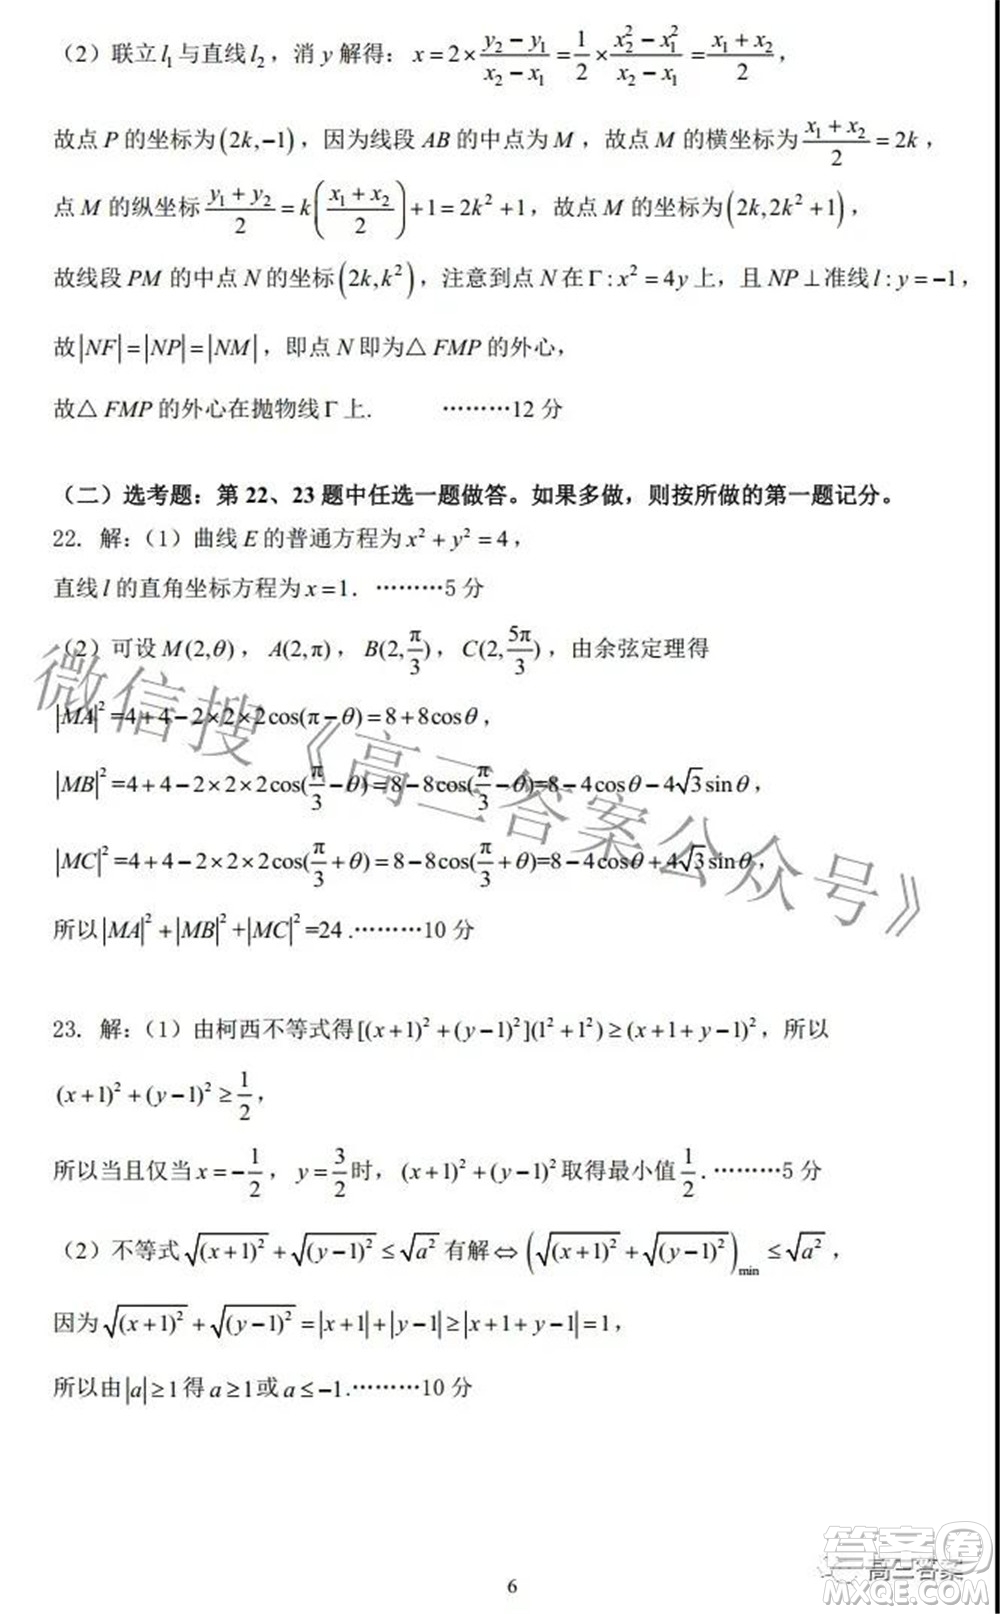 （2）联立 l₁ 与直线 l₂，消 y 解得：x = 2 × (y₂ − y₁)/(x₂ − x₁) = 1/2 × (x₂² − x₁²)/(x₂ − x₁) = (x₁ + x₂)/2，
故点 P 的坐标为 (2k, −1)，因为线段 AB 的中点为 M，故点 M 的横坐标为 (x₁ + x₂)/2 = 2k，
点 M 的纵坐标 (y₁ + y₂)/2 = k((x₁ + x₂)/2) + 1 = 2k² + 1，故点 M 的坐标为 (2k, 2k² + 1)，
故线段 PM 的中点 N 的坐标 (2k, k²)，注意到点 N 在 Γ : x² = 4y 上，且 NP ⊥ 准线 l : y = −1，
故 |NF| = |NP| = |NM|，即点 N 即为△ FMP 的外心，
故△ FMP 的外心在抛物线 Γ 上. ………12 分
（二）选考题：第 22、23 题中任选一题做答。如果多做，则按所做的第一题记分。
22. 解：（1）曲线 E 的普通方程为 x² + y² = 4，
直线 l 的直角坐标方程为 x = 1. ………5 分
（2）可设 M(2,θ)，A(2,π)，B(2,π/3)，C(2,5π/3)，由余弦定理得
|MA|² =4+4−2×2×2cos(π−θ)=8+8cosθ，
|MB|² =4+4−2×2×2cos(π/3−θ)=8−8cos(π/3−θ)=8−4cosθ−4√3sinθ，
|MC|² =4+4−2×2×2cos(π/3+θ)=8−8cos(π/3+θ)=8−4cosθ+4√3sinθ，
所以 |MA|² + |MB|² + |MC|² =24 .………10 分
23. 解：（1）由柯西不等式得 [(x+1)² + (y−1)²](1² + 1²) ≥ (x+1+y−1)²，所以
(x+1)² + (y−1)² ≥ 1/2，
所以当且仅当 x = −1/2，y = 3/2 时，(x+1)² + (y−1)² 取得最小值 1/2 . ………5 分
（2）不等式 √(x+1)² + √(y−1)² ≤ √a² 有解 ⇔ (√(x+1)² + √(y−1)²)min ≤ √a²，
因为 √(x+1)² + √(y−1)² = |x+1| + |y−1| ≥ |x+1+y−1| = 1，
所以由 |a| ≥ 1 得 a ≥ 1 或 a ≤ −1.………10 分
6
微信搜《高三答案公众号》
高三答案
答案圈
MXQE.COM